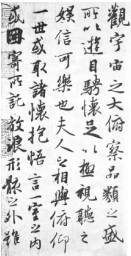 觀宇宙之大俯察品類之盛
所以遊目騁懷足以極視聽之
娛信可樂也夫人之相與俯仰
一世或取諸懷抱悟言一室之内
或因寄所託放浪形骸之外雖